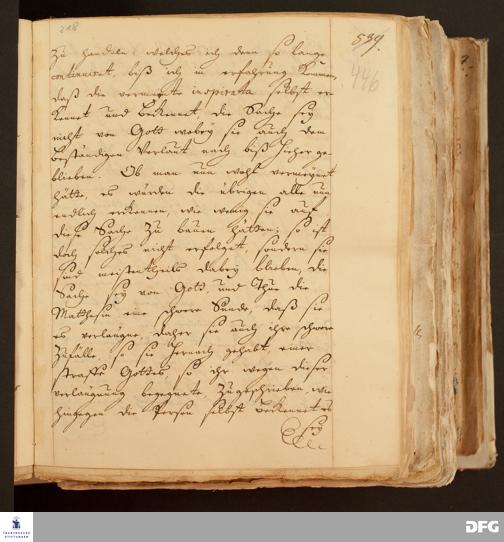 218
539.
446
zu handeln: welches ich denn so lange
continuiret, biß ich in erfahrung kommen,
daß die vermeinte inspirata selbst er-
kennet und bekennet, die Sache sey
nicht von Gott wobey sie auch dem
beständigen Verlaut nach biß hieher ge-
blieben. Ob man nun wohl vermeynet
hätte, es würden die übrigen alle nun
endlich erkennen, wie wenig sie auf
diese Sache zu bauen hätten; so ist
doch solches nicht erfolget, sondern sie
sind meistentheils dabey blieben, die
Sache sey von Gott, und thue die
Matthesin eine schwere Sünde, daß sie
es verläugne, daher sie auch ihre schwere
Zufälle, so sie hernach gehabt, einer
straffe Gottes, so ihr wegen dieser
verläugnung begegnete, zugeschrieben, wie
hingegen die Person selbst bekennet es
sey
FRANCKESCHE
STIFTUNGEN
DFG